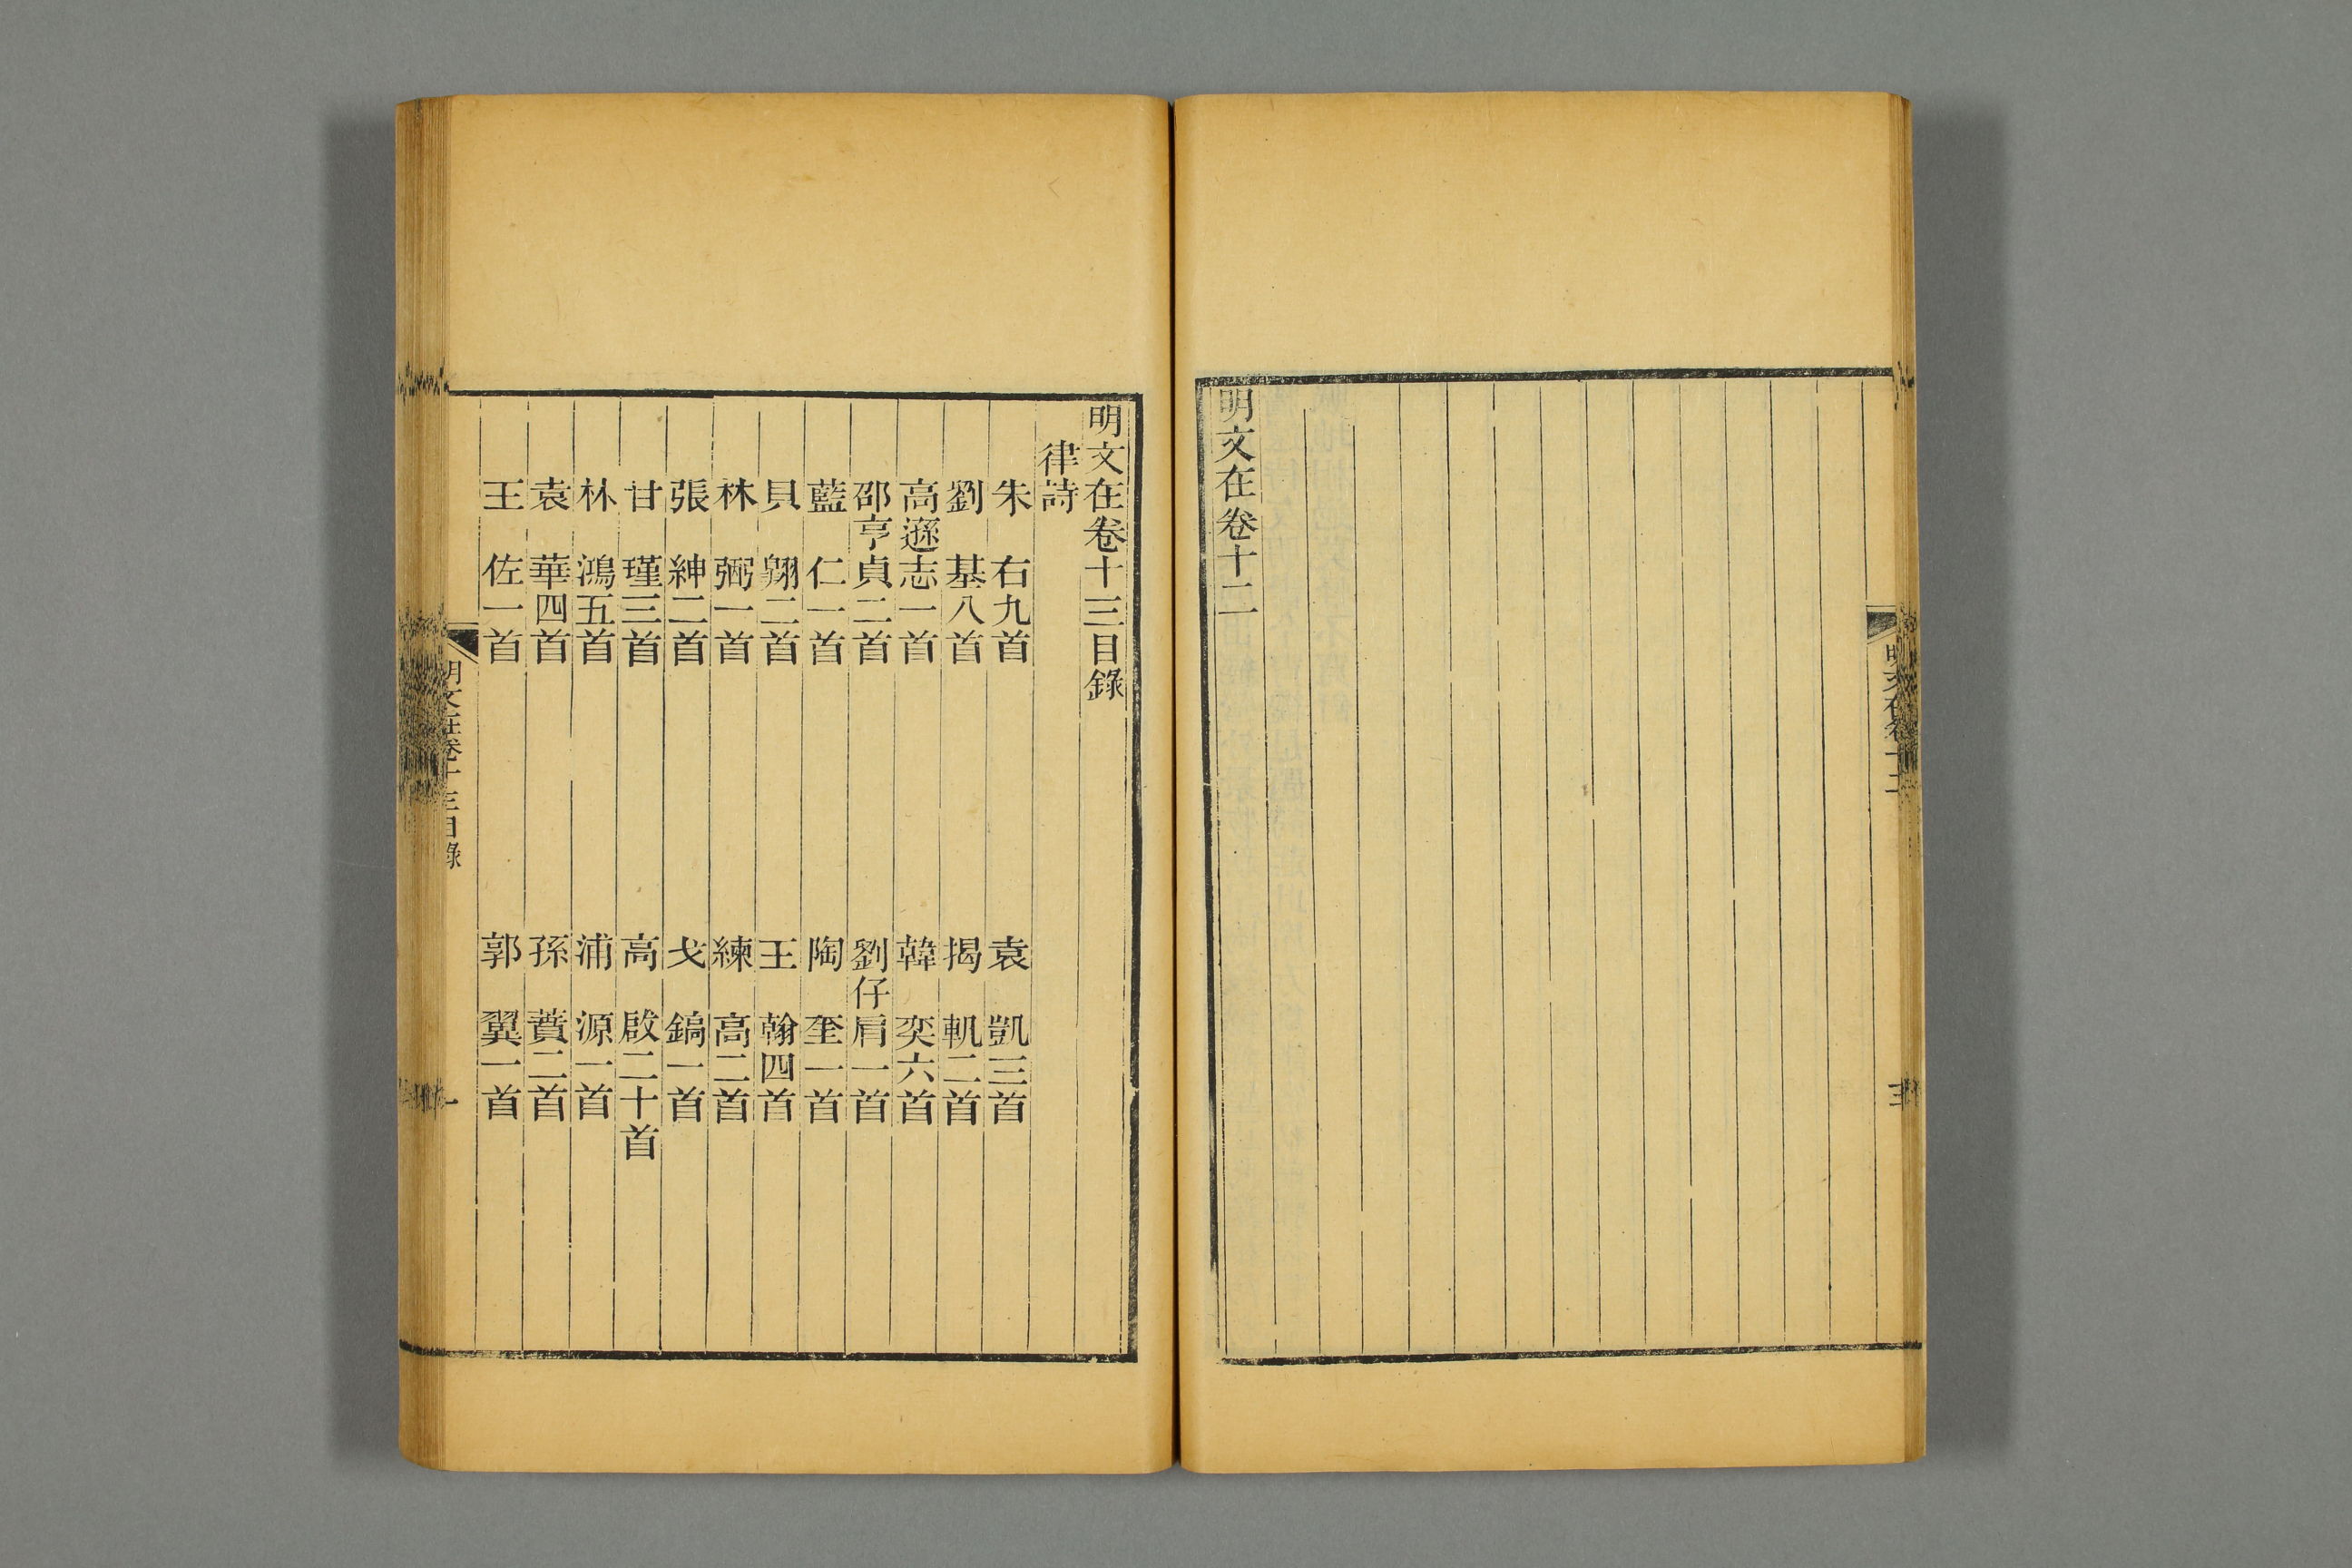 明文在卷十二
明文在卷十三目錄
律詩
朱右九首　袁凱三首
劉基八首　揭軏二首
高遜志一首　韓奕六首
邵亨貞二首　劉仔肩一首
藍仁一首　陶奎一首
貝翱二首　王翰四首
林弼一首　練高二首
張紳二首　戈鎬一首
甘瑾三首　高啟二十首
林鴻五首　浦源一首
袁華四首　孫蕡二首
王佐一首　郭翼一首
明文在卷十三目錄
一